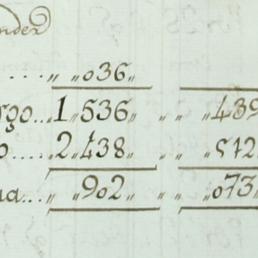 ndex
.... „ „036„
rgo.. 1„536„ „ „ „439
o.... 2„438„ „ „ „512
ua... „ „902„ „ „ „073„